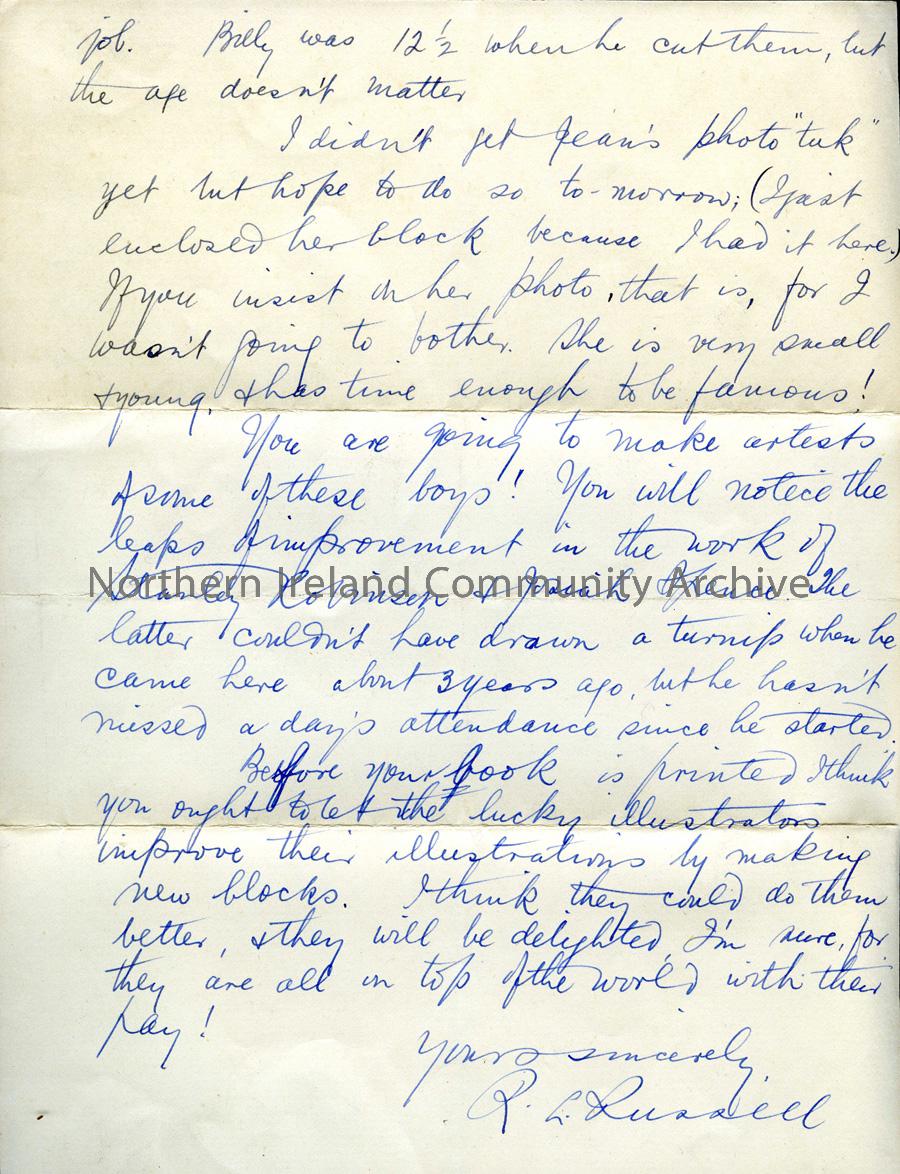 job. Billy was 12½ when he cut them, but
the age doesn't matter
I didn't get Jean's photo "tuk"
yet but hope to do so to-morrow; (I just
enclosed her block because I had it here.)
If you insist on her photo, that is, for I
wasn't going to bother. She is very small
& young, & has time enough to be famous!
You are going to make artests
of some of these boys! You will notice the
leaps of improvement in the work of
Northern Ireland Community Archive
Stanley Robinson & Josiah The
latter couldn't have drawn a turnip when he
came here about 3 years ago, but he hasn't
missed a day's attendance since he started.
Before your book is printed I think
you ought to let the lucky illustrators
improve their illustrations by making
new blocks. I think they could do them
better, & they will be delighted, I'm sure, for
they are all on top of the world with their
pay!
Yours sincerely,
R. L. Russell